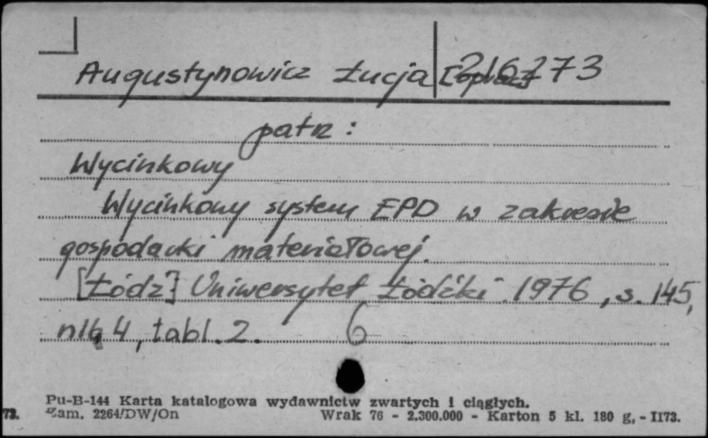 Augustynowicz Łucja [oprac] 216273
patrz:
Wycinkowy
Wycinkowy system EPD w zakresie
gospodarki materiałowej.
[Łódź] Uniwersytet Łódzki 1976, s. 145,
nlb 4, tabl. 2. 6
Pu-B-144 Karta katalogowa wydawnictw zwartych i ciągłych.
73. Zam. 2264/DW/On Wrak 76 - 2.300.000 - Karton 5 kl. 180 g, - II73.